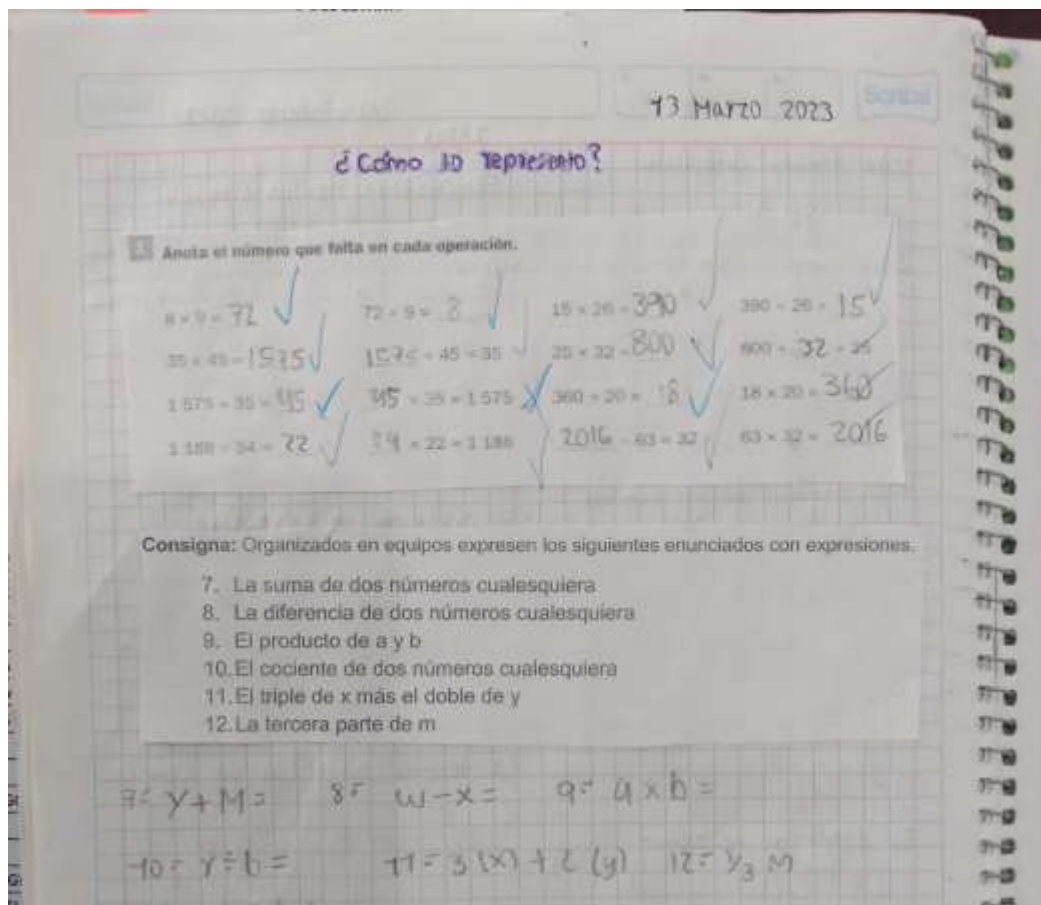 Scribe
13 Marzo 2023
¿Cómo lo represento?
Anota el número que falta en cada operación.
8 × 9 = 72 72 ÷ 9 = 8 15 × 26 = 390 390 ÷ 26 = 15
35 × 45 = 1575 1575 ÷ 45 = 35 25 × 32 = 800 800 ÷ 32 = 25
1 575 ÷ 35 = 45 45 × 35 = 1 575 360 ÷ 20 = 18 18 × 20 = 360
1 188 ÷ 54 = 22 54 × 22 = 1 188 2016 ÷ 63 = 32 63 × 32 = 2016
Consigna: Organizados en equipos expresen los siguientes enunciados con expresiones.
7. La suma de dos números cualesquiera
8. La diferencia de dos números cualesquiera
9. El producto de a y b
10. El cociente de dos números cualesquiera
11. El triple de x más el doble de y
12. La tercera parte de m
7= Y + M = 8= w - x = 9= a x b =
10= Y ÷ b = 11= 3 (x) + 2 (y) 12= 1/3 M